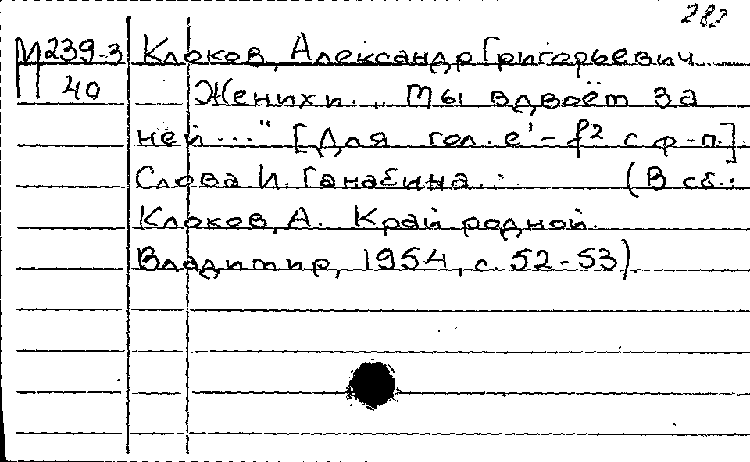 282
М239-3 Клоков, Александр Григорьевич
40 Женихи. „Мы вдвоём за
ней..." [Для гол. e'-f² с ф-п.]
Слова И. Ганабина. : (В сб.:
Клоков, А. Край родной.
Владимир, 1954, с. 52-53).